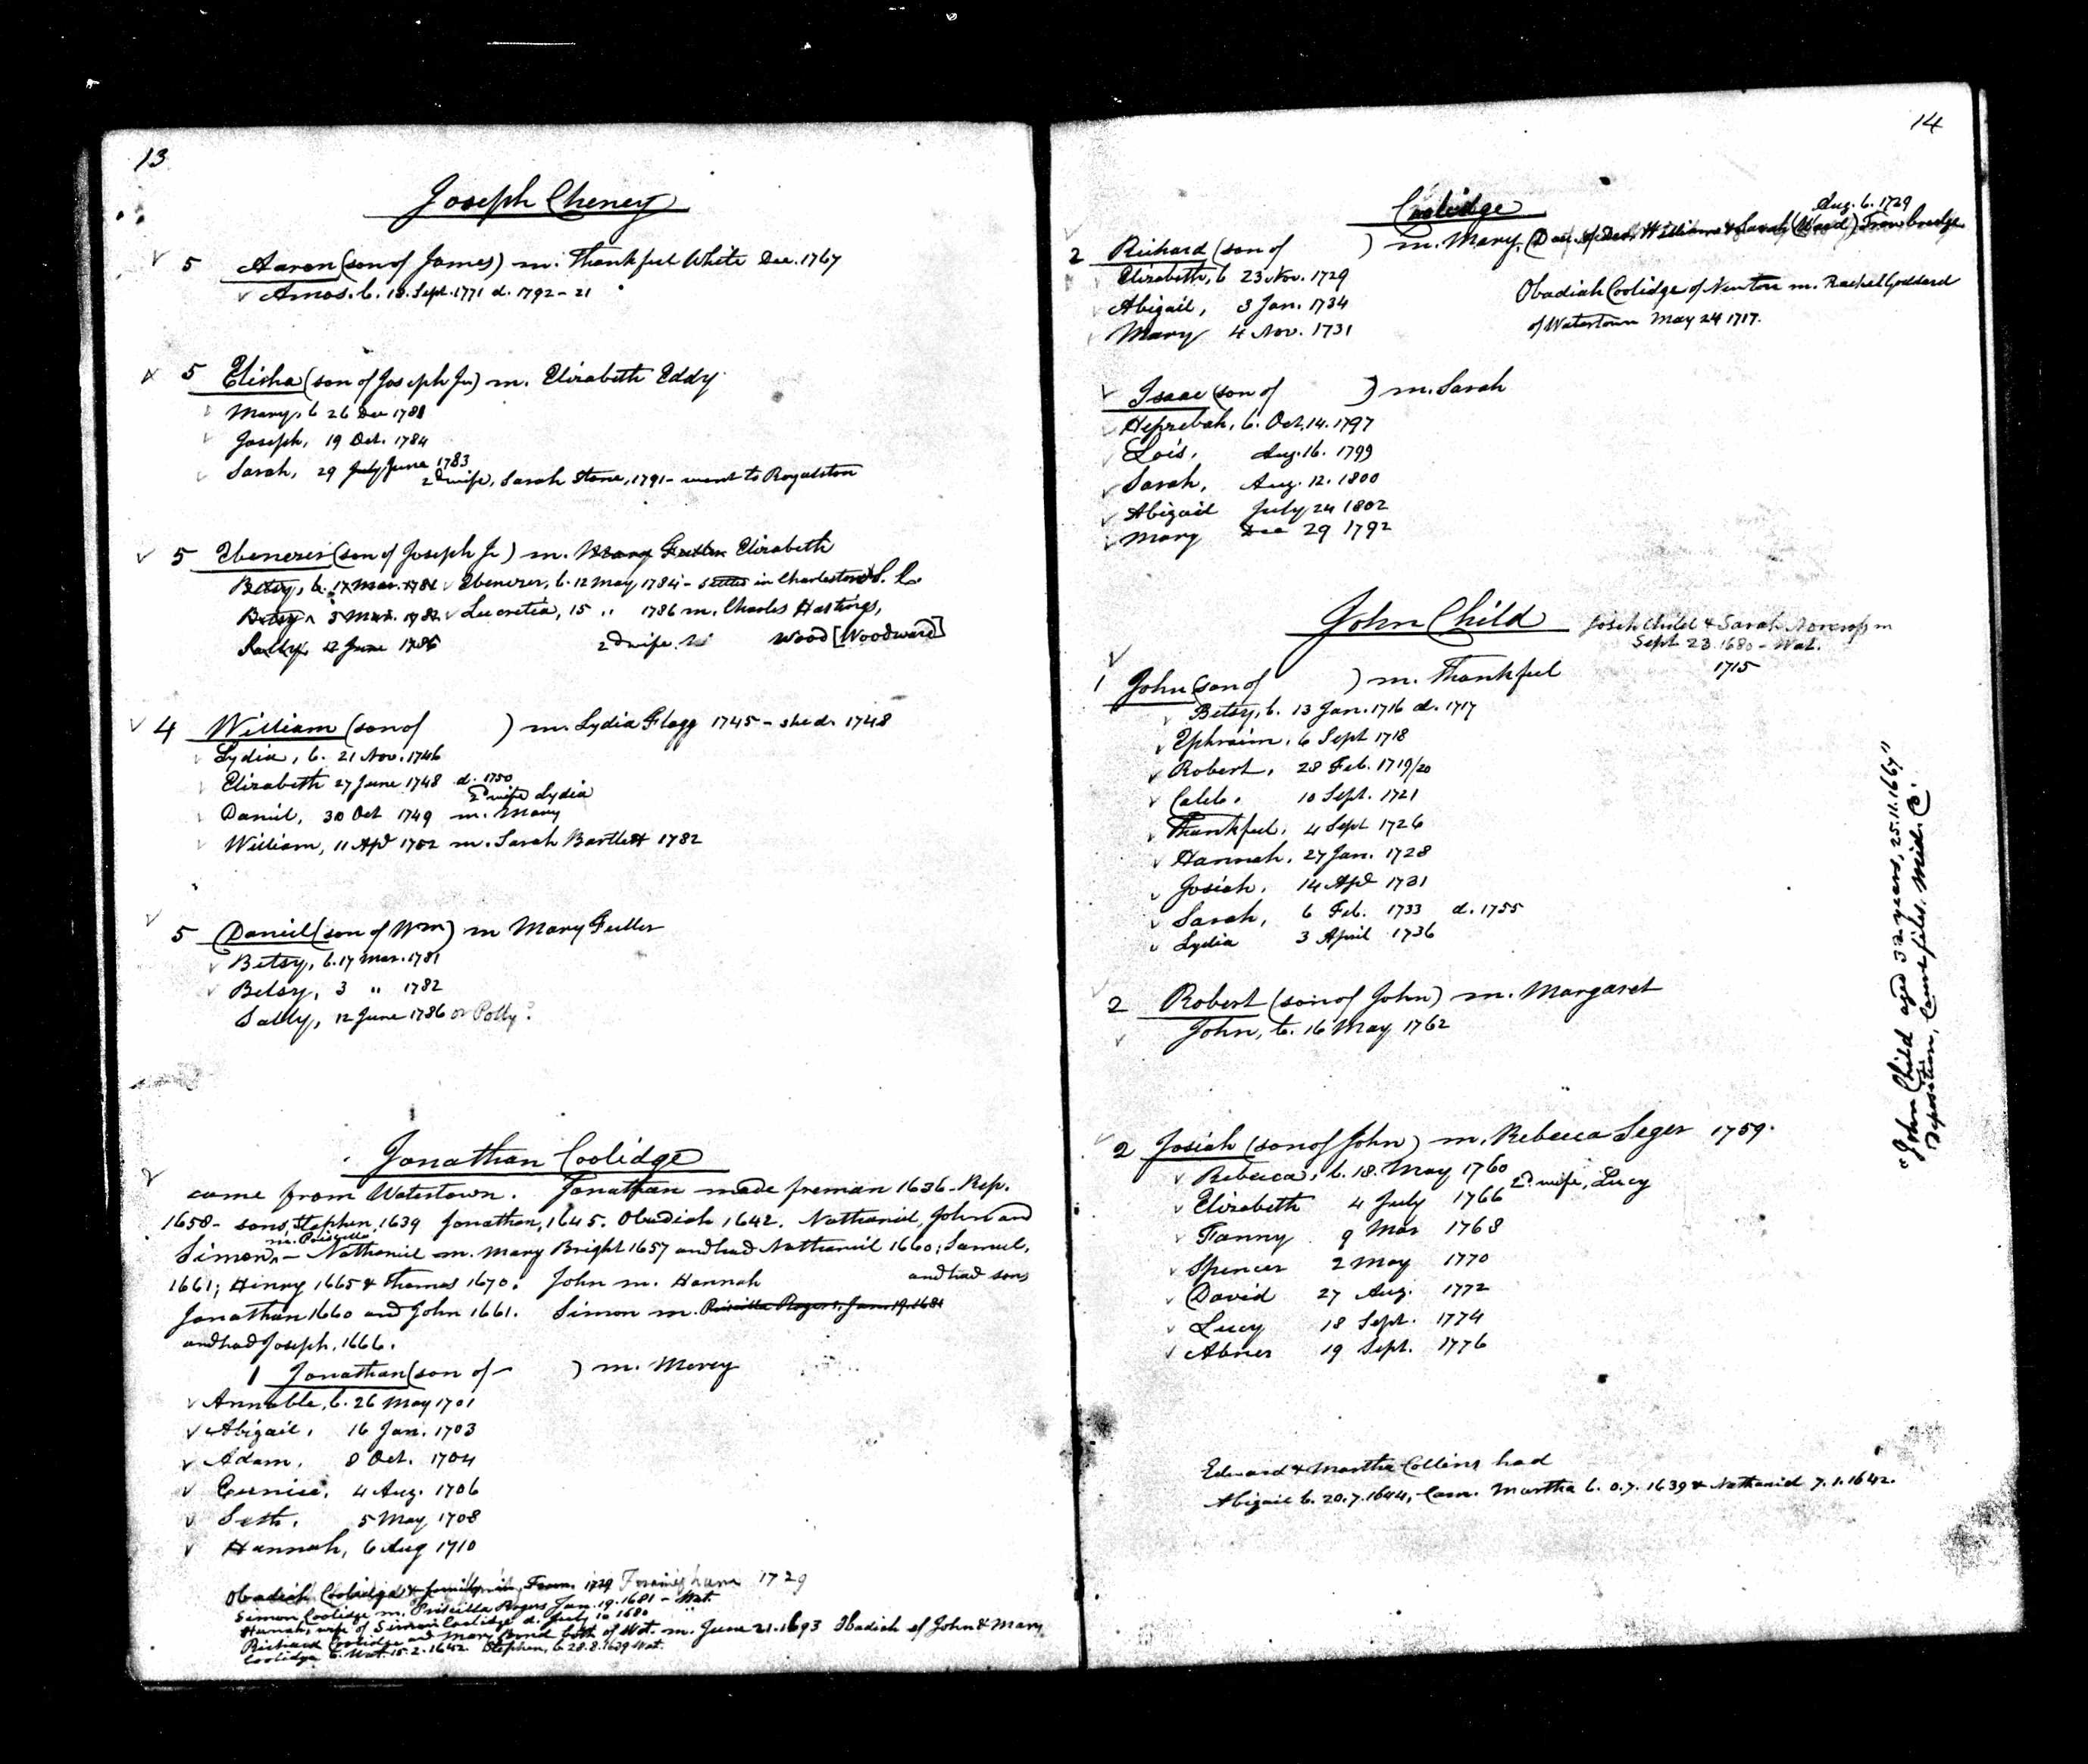 13
Joseph Cheney
5 Aaron (son of James) m. Thankful White Dec. 1767
Amos. b. 18. Sept. 1771 d. 1792 - 21
5 Elisha (son of Joseph Jr) m. Elizabeth Eddy
Mary, b 26 Dec 1781
Joseph, 19 Oct. 1784
Sarah, 29 July June 1783
2d wife, Sarah Stone, 1791 - went to Royalston
5 Ebenezer (son of Joseph Jr) m. Mary Fuller Elizabeth
Betsy, b. 17 Mar. 1781 Ebenezer, b. 12 May, 1784 - settled in Charleston S. C.
Betsy 3 Mar. 1782 Lucretia, 15 " 1786 m. Charles Hastings,
Sally, 12 June 1786 2d wife Wood [Woodward]
4 William (son of ) m. Lydia Flagg 1745 - she d. 1748
Lydia, b. 21 Nov. 1746
Elizabeth 27 June 1748 d. 1750
2d wife Lydia
Daniel, 30 Oct 1749 m. Mary
William, 11 Apl 1752 m. Sarah Bartlett 1782
5 Daniel (son of Wm) m Mary Fuller
Betsy, b. 17 Mar. 1781
Betsy, 3 " 1782
Sally, 12 June 1786 or Polly?
Jonathan Coolidge
came from Watertown. Jonathan made freman 1636. Rep.
1658 - sons, Stephen, 1639 Jonathan, 1645. Obadiah 1642. Nathaniel, John and
m. Priscilla
Simon, - Nathaniel m. Mary Bright 1657 and had Nathaniel 1660; Samuel,
1661; Henry 1665 & Thomas 1670. John m. Hannah and had sons
Jonathan 1660 and John 1661. Simon m. Priscilla Rogers, Jan. 19. 1681
and had Joseph, 1666.
1 Jonathan (son of - ) m. Mercy
Annable, b. 26 May 1701
Abigail, 16 Jan. 1703
Adam, 8 Oct. 1704
Eunice, 4 Aug. 1706
Seth, 5 May 1708
Hannah, 6 Aug 1710
Obadiah Coolidge & family Fram. 1729 Framingham 1729
Simon Coolidge m. Priscilla Rogers Jan. 19. 1681 - Wat.
Hannah, wife of Simon Coolidge d. July 10 1680
Richard Coolidge and Mary Bond both of Wat. m. June 21. 1693 Obadiah of John & Mary
Coolidge b. Wat. 15. 2. 1642 Stephen, b. 28. 8. 1639 Wat.
14
Coolidge
Aug. 6. 1729
2 Richard (son of ) m. Mary, (Dau. of Dea. William & Sarah (Ward) Trowbridge
Elizabeth, b 23 Nov. 1729
Abigail, 3 Jan. 1734
Mary 4 Nov. 1731
Obadiah Coolidge of Newton m. Rachel Goddard
of Watertown May 24 1717.
Isaac (son of ) m. Sarah
Hepzebah, b. Oct. 14. 1797
Lois, Aug. 16. 1799
Sarah, Aug. 12. 1800
Abigail July 24 1802
Mary Dec 29 1792
John Child
Joseph Child & Sarah Norcross m
Sept 23 1680 - Wat.
1715
1 John (son of ) m. Thankful
Betsy, b. 13 Jan. 1716 d. 1717
Ephraim, 6 Sept 1718
Robert, 28 Feb. 1719/20
Caleb, 10 Sept. 1721
Thankful, 4 Sept 1726
Hannah, 27 Jan. 1728
Josiah, 14 Apl 1731
Sarah, 6 Feb. 1733 d. 1755
Lydia 3 April 1736
2 Robert (son of John) m. Margaret
John, b. 16 May 1762
2 Josiah (son of John) m. Rebecca Seger 1759.
Rebecca, b. 18. May 1760
2d wife, Lucy
Elizabeth 4 July 1766
Fanny 9 Mar 1768
Spencer 2 May 1770
David 27 Aug. 1772
Lucy 18 Sept. 1774
Abner 19 Sept. 1776
"John Child aged 32 years, 25. 11. 1667"
Deposition, Court files. Mid. Co.
Edward & Martha Collins had
Abigail b. 20. 7. 1644, Cam. Martha b. 0. 7. 1639 & Nathaniel 7. 1. 1642.